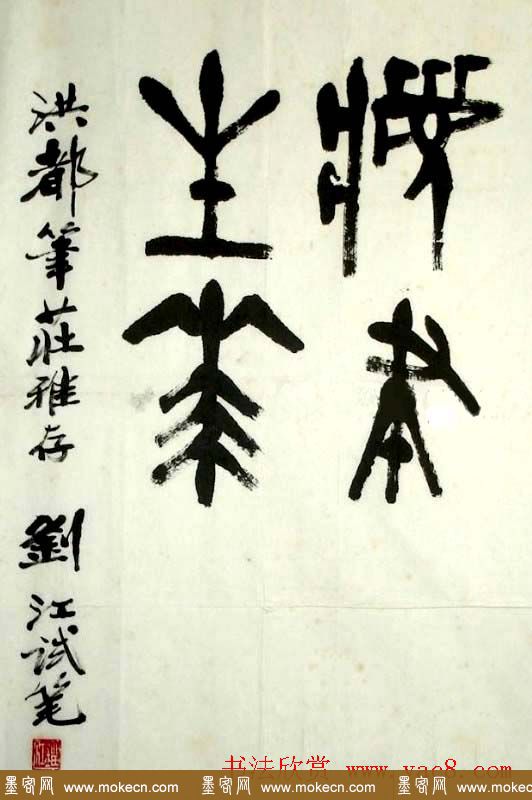 夢筆
生華
洪都筆莊雅存 劉江试笔
书法欣赏 www.yac8.com
墨客网 www.mokecn.com 墨客网 www.mokecn.com 墨客网 www.mokecn.com